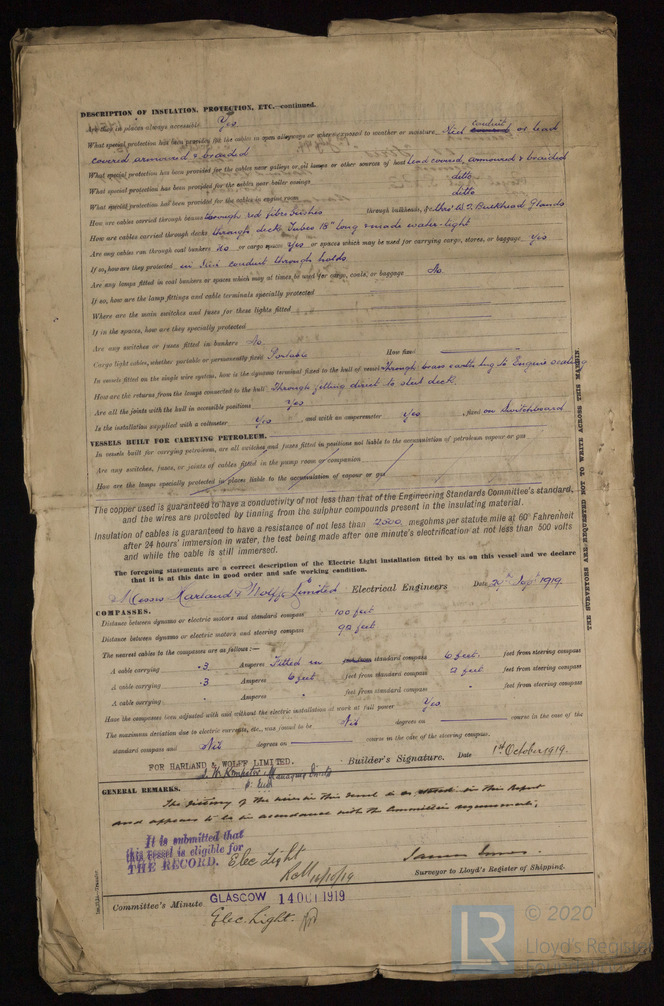 DESCRIPTION OF INSULATION, PROTECTION, ETC.—continued.
Are they in places always accessible Yes
What special protection has been provided for the cables in open alleyways or where exposed to weather or moisture conduit or lead
covered armoured & braided
What special protection has been provided for the cables near galleys or oil lamps or other sources of heat lead covered, armoured & braided
What special protection has been provided for the cables near boiler casings ditto
What special protection has been provided for the cables in engine room ditto
How are cables carried through beams through red fibre bushes through bulkheads, &c. thro' W.T. Bulkhead Glands
How are cables carried through decks through deck Tubes 18" long & made water-tight
Are any cables run through coal bunkers No or cargo spaces Yes or spaces which may be used for carrying cargo, stores, or baggage Yes
If so, how are they protected in conduit through holds
Are any lamps fitted in coal bunkers or spaces which may at times be used for cargo, coals, or baggage No
If so, how are the lamp fittings and cable terminals specially protected
Where are the main switches and fuses for these lights fitted
If in the spaces, how are they specially protected
Are any switches or fuses fitted in bunkers No
Cargo light cables, whether portable or permanently fixed Portable How fixed
In vessels fitted on the single wire system, how is the dynamo terminal fixed to the hull of vessel Through brass earth lug to Engine seating
How are the returns from the lamps connected to the hull Through direct to steel deck.
Are all the joints with the hull in accessible positions Yes
Is the installation supplied with a voltmeter Yes , and with an amperemeter Yes , fixed on Switchboard
VESSELS BUILT FOR CARRYING PETROLEUM.
In vessels built for carrying petroleum, are all switches and fuses fitted in positions not liable to the accumulation of petroleum vapour or gas
Are any switches, fuses, or joints of cables fitted in the pump room or companion
How are the lamps specially protected in places liable to the accumulation of vapour or gas
The copper used is guaranteed to have a conductivity of not less than that of the Engineering Standards Committee's standard,
and the wires are protected by tinning from the sulphur compounds present in the insulating material.
Insulation of cables is guaranteed to have a resistance of not less than 2500 megohms per statute mile at 60° Fahrenheit
after 24 hours' immersion in water, the test being made after one minute's electrification at not less than 500 volts
and while the cable is still immersed.
The foregoing statements are a correct description of the Electric Light installation fitted by us on this vessel and we declare
that it is at this date in good order and safe working condition.
Messrs Harland & Wolff Limited Electrical Engineers Date Sept 1919
COMPASSES.
Distance between dynamo or electric motors and standard compass 100 feet
Distance between dynamo or electric motors and steering compass 90 feet
The nearest cables to the compasses are as follows:—
A cable carrying .3 Amperes Fitted in standard compass 6 feet. feet from steering compass
A cable carrying .3 Amperes 6 feet feet from standard compass feet feet from steering compass
A cable carrying Amperes feet from standard compass feet from steering compass
Have the compasses been adjusted with and without the electric installation at work at full power Yes
The maximum deviation due to electric currents, etc., was found to be Nil degrees on course in the case of the
standard compass and Nil degrees on course in the case of the steering compass.
FOR HARLAND & WOLFF LIMITED. Builder's Signature. Date 1st October 1919.
Managing
GENERAL REMARKS.
The of the in this vessel is as in this Report
and appears to be in accordance with the Committee's requirements,
It is submitted that
this vessel is eligible for
THE RECORD. Elec Light
16/10/19
James
Surveyor to Lloyd's Register of Shipping.
Committee's Minute GLASGOW 14 OCT 1919
Elec. Light.
THE SURVEYORS ARE REQUESTED NOT TO WRITE ACROSS THIS MARGIN.
LR
© 2020
Lloyd's Register
Foundation